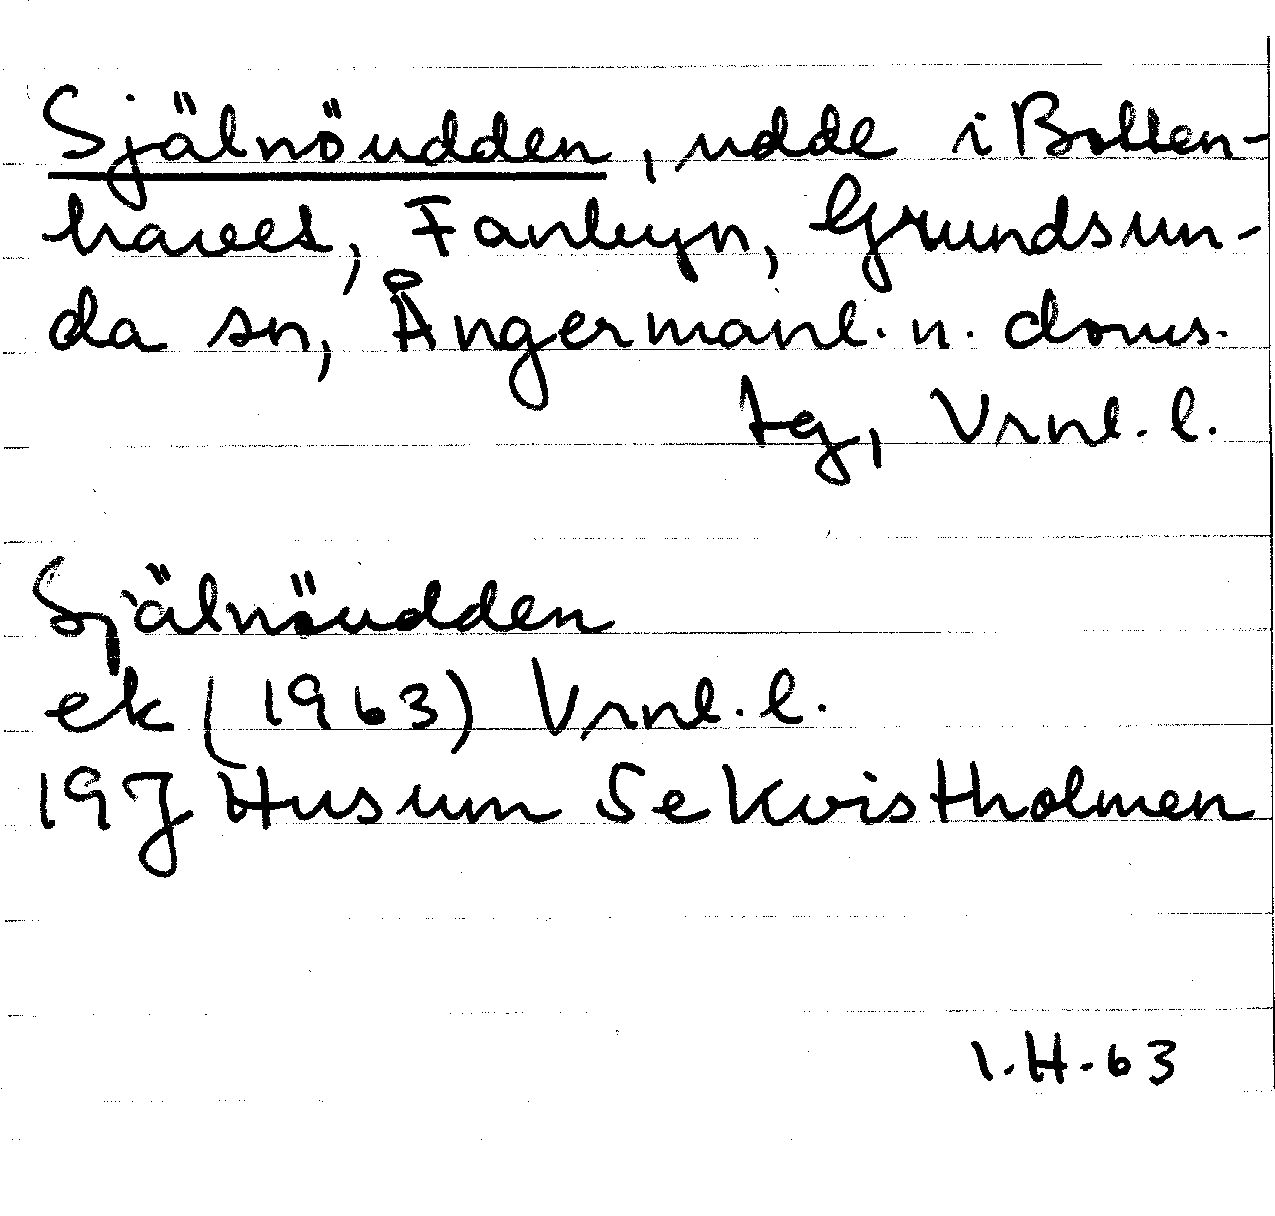 Själnöudden, udde i Botten-
havet, Fanbyn, Grundsun-
da sn, Ångermanl. n. doms.
tg, Vrnl. l.
Själnöudden
ek (1963) Vrnl. l.
19J Husum Se Kvistholmen
I.H. 63